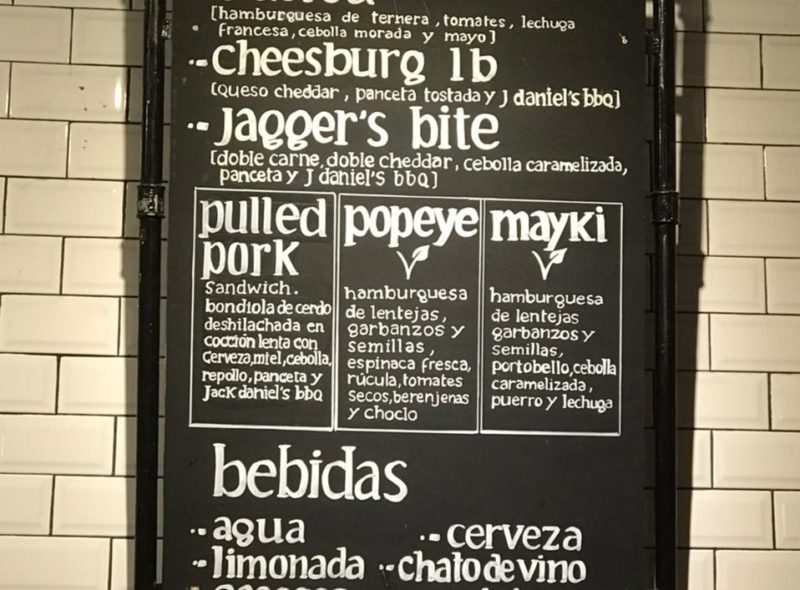 [hamburguesa de ternera, tomates, lechuga
francesa, cebolla morada y mayo]
·-cheesburg 1b
[queso cheddar, panceta tostada y J daniel's bbq]
·-Jagger's bite
[doble carne, doble cheddar, cebolla caramelizada,
panceta y J daniel's bbq]
pulled
pork
sandwich.
bondiola de cerdo
deshilachada en
cocción lenta con
cerveza, miel, cebolla,
repollo, panceta y
Jack daniel's bbq
popeye
hamburguesa
de lentejas,
garbanzos y
semillas,
espinaca fresca,
rúcula, tomates
secos, berenjenas
y choclo
mayki
hamburguesa
de lentejas
garbanzos y
semillas,
portobello, cebolla
caramelizada,
puerro y lechuga
bebidas
·-agua ·-cerveza
·-limonada ·-chato de vino